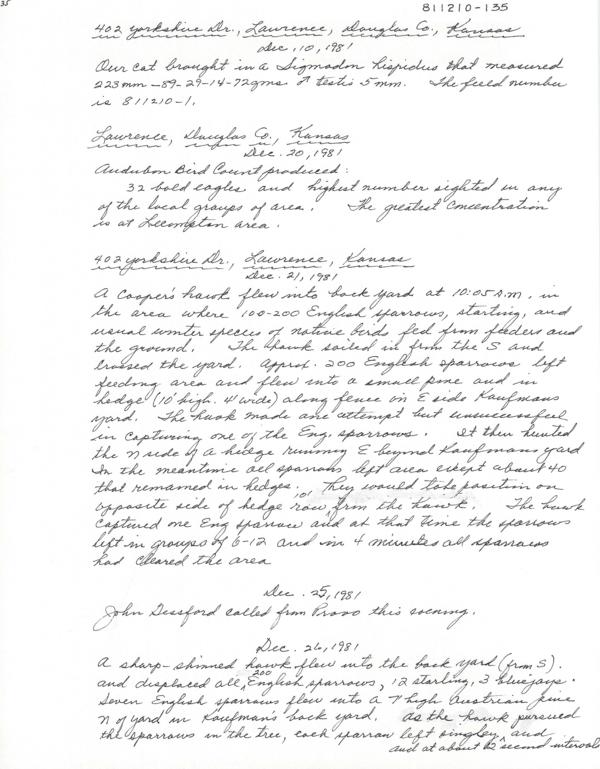 35
811210-135
402 Yorkshire Dr., Lawrence, Douglas Co., Kansas
Dec. 10, 1981
Our cat brought in a Sigmodon hispidus that measured
223mm-89-29-14-72gms ♂ testis 5mm. The field number
is 811210-1.
Lawrence, Douglas Co., Kansas
Dec. 20, 1981
Audubon Bird Count produced:
32 bald eagles and highest number sighted in any
of the local groups of area. The greatest concentration
is at Lecompton area.
402 Yorkshire Dr., Lawrence, Kansas
Dec. 21, 1981
A Cooper's hawk flew into back yard at 10:05 A.M. in
the area where 100-200 English sparrows, starling, and
usual winter species of native birds fed from feeders and
the ground. The hawk sailed in from the S and
crossed the yard. Approx. 200 English sparrows left
feeding area and flew into a small pine and in
hedge (10' high. 4' wide) along fence on E side Kaufmans
yard. The hawk made one attempt but unsuccessful
in capturing one of the Eng. sparrows. It then hunted
the N side of a hedge running E beyond Kaufmans yard
In the meantime all sparrows left area except about 40
that remained in hedges. They would take position on
opposite side of hedge row 10' from the hawk. The hawk
captured one Eng sparrow and at that time the sparrows
left in groups of 6-12 and in 4 minutes all sparrows
had cleared the area
Dec. 25, 1981
John called from Provo this evening.
Dec. 26, 1981
A sharp-shinned hawk flew into the back yard (from S).
and displaced all 200 English sparrows, 12 starling, 3 bluejays.
Seven English sparrows flew into a 7' high Austrian pine
N of yard in Kaufman's back yard. As the hawk pursued
the sparrows in the tree, each sparrow left singley and
and at about 12 second intervals